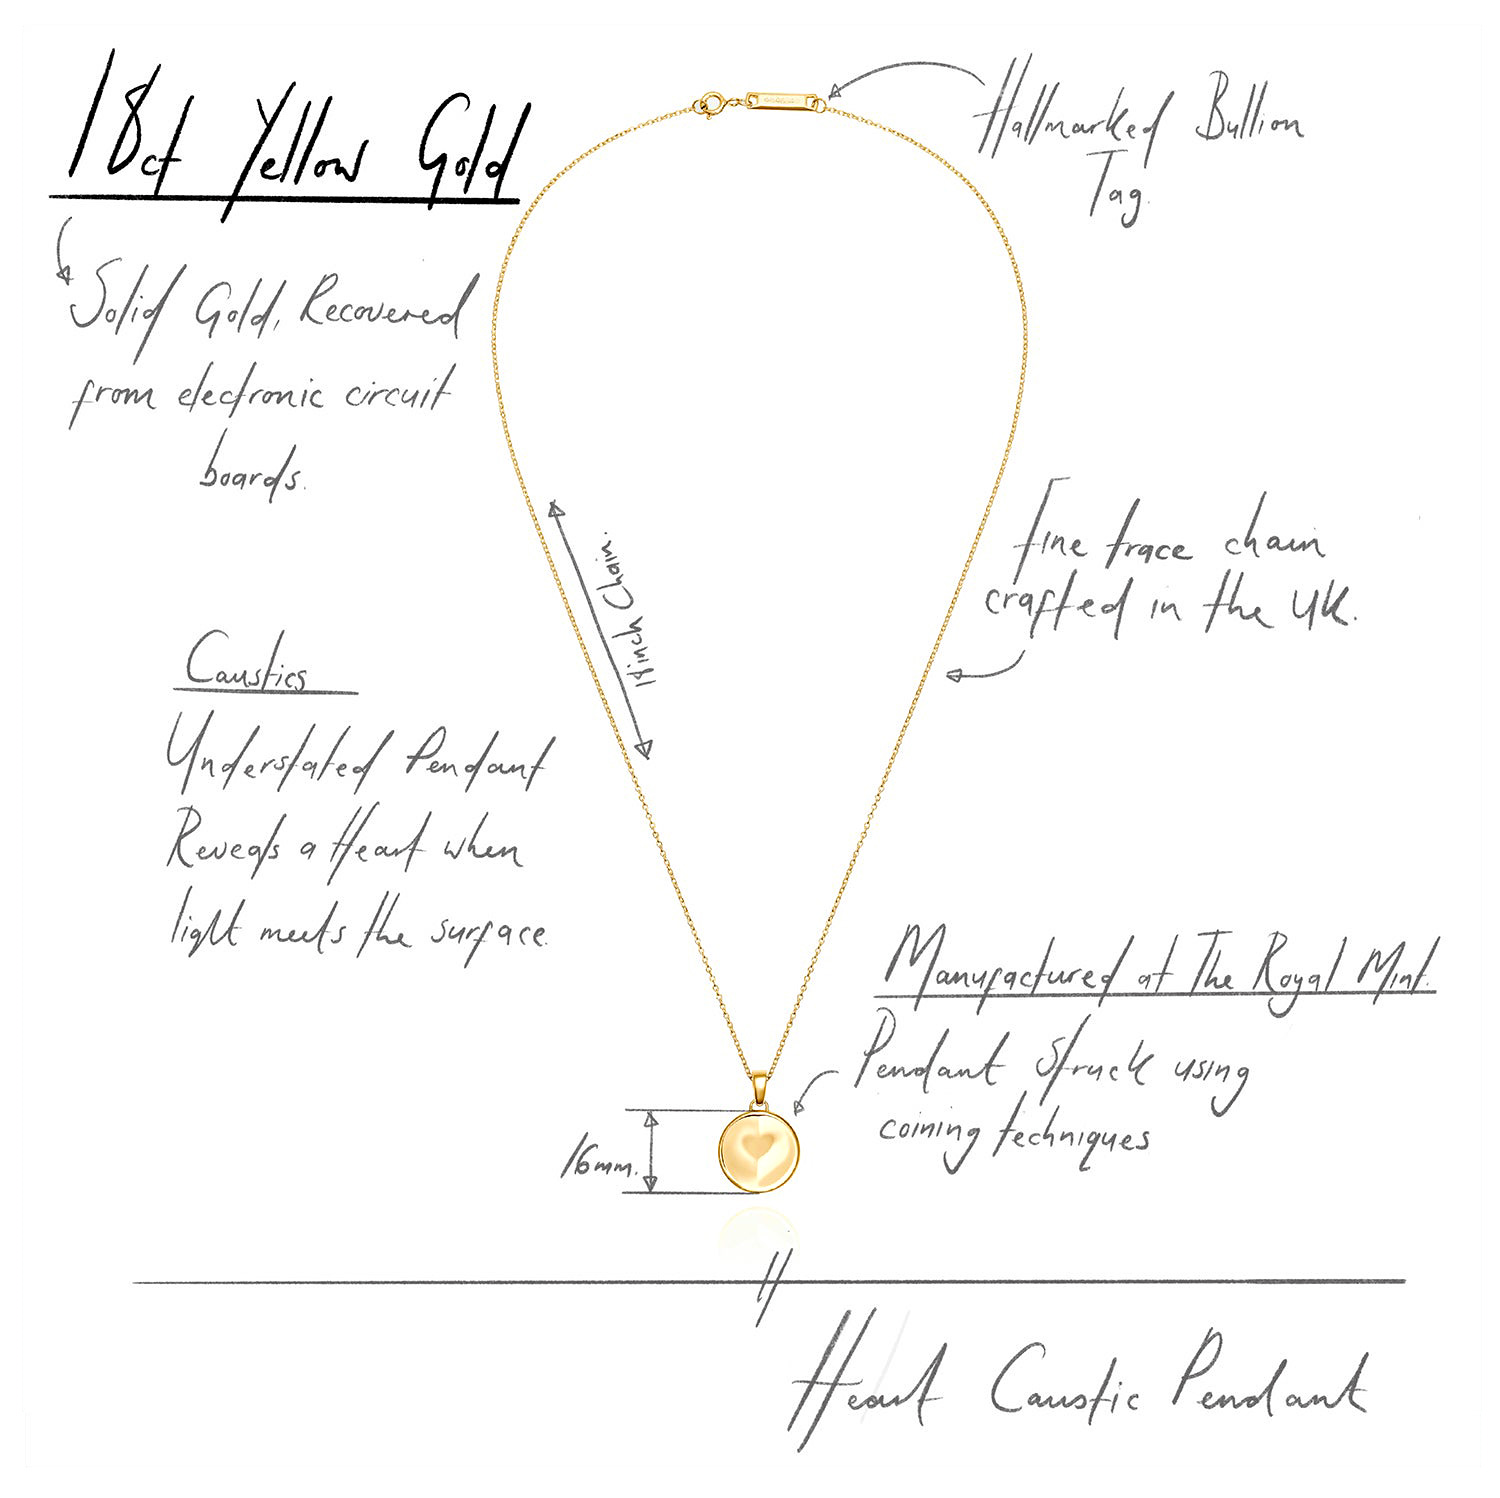 18ct Yellow Gold
Solid Gold, Recovered
from electronic circuit
boards.
Hallmarked Bullion
Tag.
18inch Chain.
Fine trace chain
crafted in the UK.
Caustics
Understated Pendant
Reveals a Heart when
light meets the surface.
Manufactured at The Royal Mint.
Pendant Struck using
coining techniques
16mm.
Heart Caustic Pendant